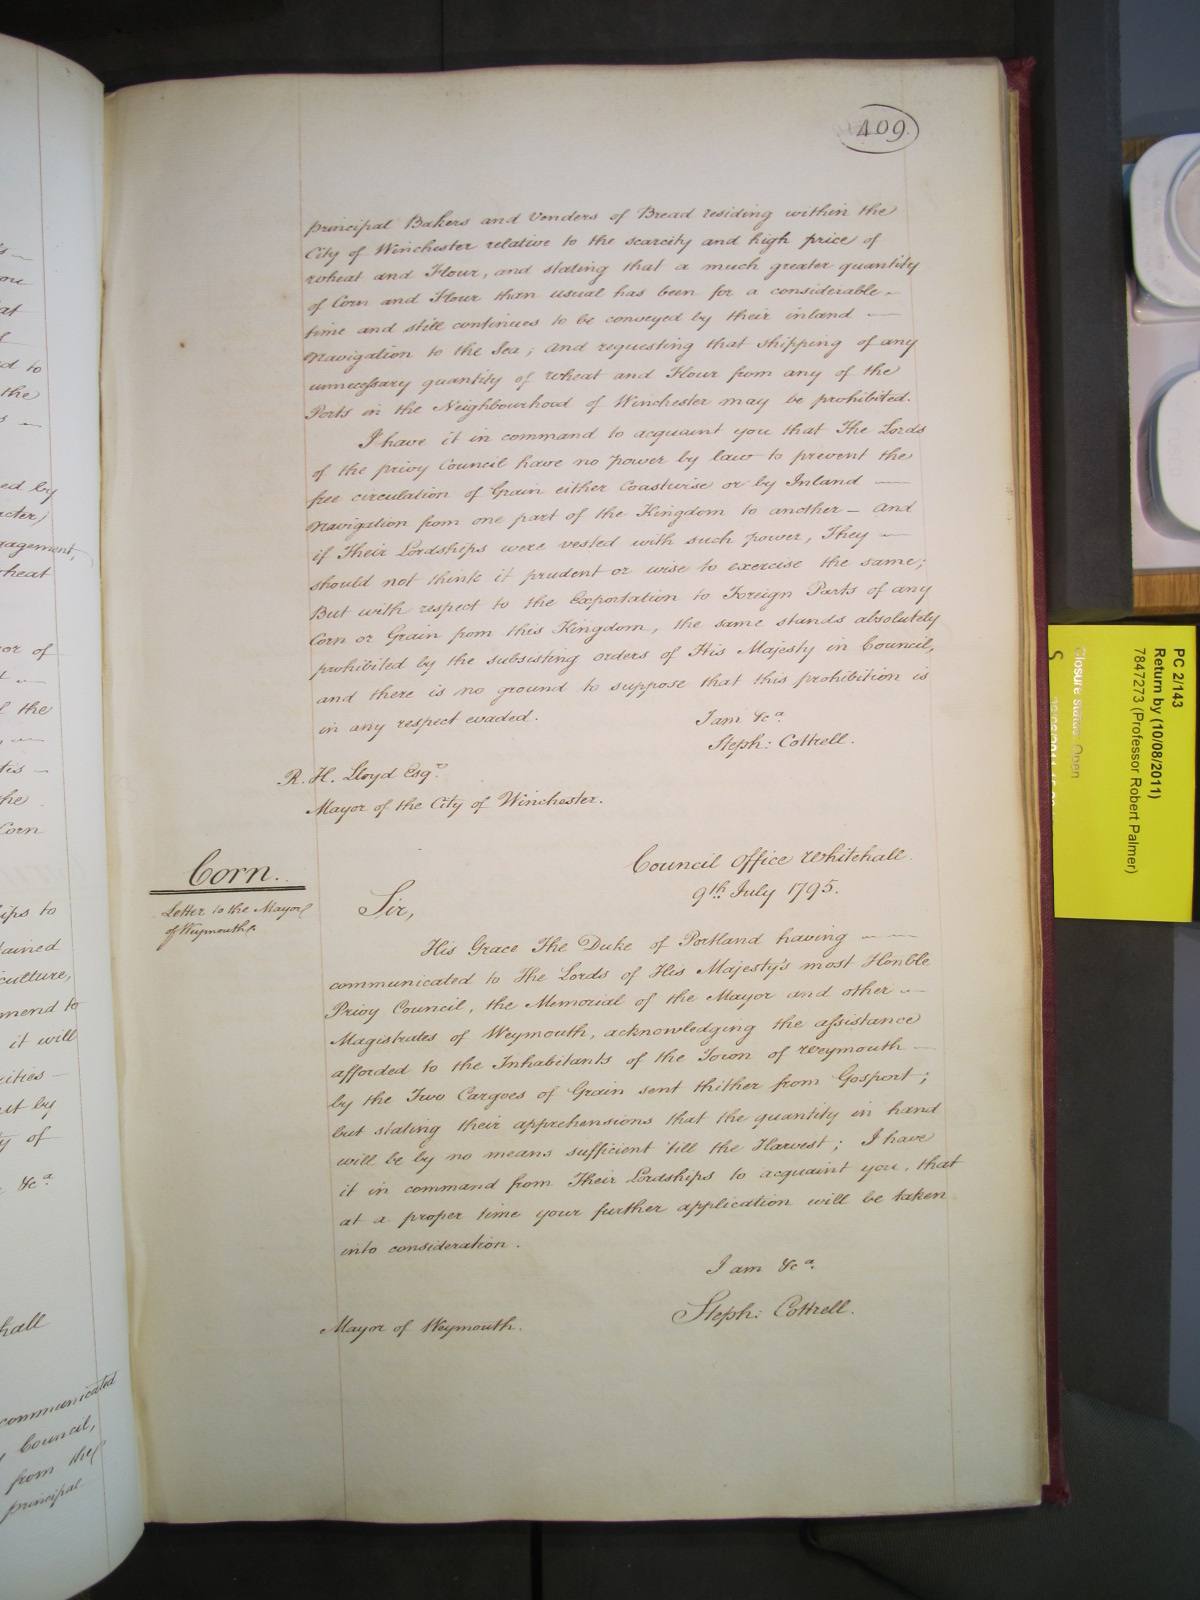 409
principal Bakers and Venders of Bread residing within the
City of Winchester relative to the scarcity and high price of
wheat and Flour, and stating that a much greater quantity
of Corn and Flour than usual has been for a considerable
time and still continues to be conveyed by their inland
Navigation to the Sea; and requesting that shipping of any
unnecessary quantity of wheat and Flour from any of the
Ports in the Neighbourhood of Winchester may be prohibited.
I have it in command to acquaint you that The Lords
of the privy Council have no power by law to prevent the
free circulation of Grain either Coastwise or by Inland
Navigation from one part of the Kingdom to another — and
if Their Lordships were vested with such power, They
should not think it prudent or wise to exercise the same;
But with respect to the Exportation to Foreign Parts of any
Corn or Grain from this Kingdom, the same stands absolutely
prohibited by the subsisting orders of His Majesty in Council,
and there is no ground to suppose that this prohibition is
in any respect evaded.
I am &c a.
Steph: Cottrell.
R. H. Lloyd Esqr.
Mayor of the City of Winchester.
Corn.
Letter to the Mayor
of Weymouth.
Council Office Whitehall.
9th July 1795.
Sir,
His Grace The Duke of Portland having
communicated to The Lords of His Majesty's most Honble
Privy Council, the Memorial of the Mayor and other
Magistrates of Weymouth, acknowledging the assistance
afforded to the Inhabitants of the Town of Weymouth
by the Two Cargoes of Grain sent thither from Gosport;
but stating their apprehensions that the quantity in hand
will be by no means sufficient 'till the Harvest; I have
it in command from Their Lordships to acquaint you, that
at a proper time your further application will be taken
into consideration.
I am &c a.
Steph: Cottrell.
Mayor of Weymouth.
ou
at
d to
the
ed by
acter)
agement,
wheat
or of
the
Corn
ips to
culture,
mend to
it will
ut by
y of
&c a.
hall
communicated
Council,
from the
principal
PC 2/143
Return by (10/08/2011)
7847273 (Professor Robert Palmer)
Closure status: Open
S